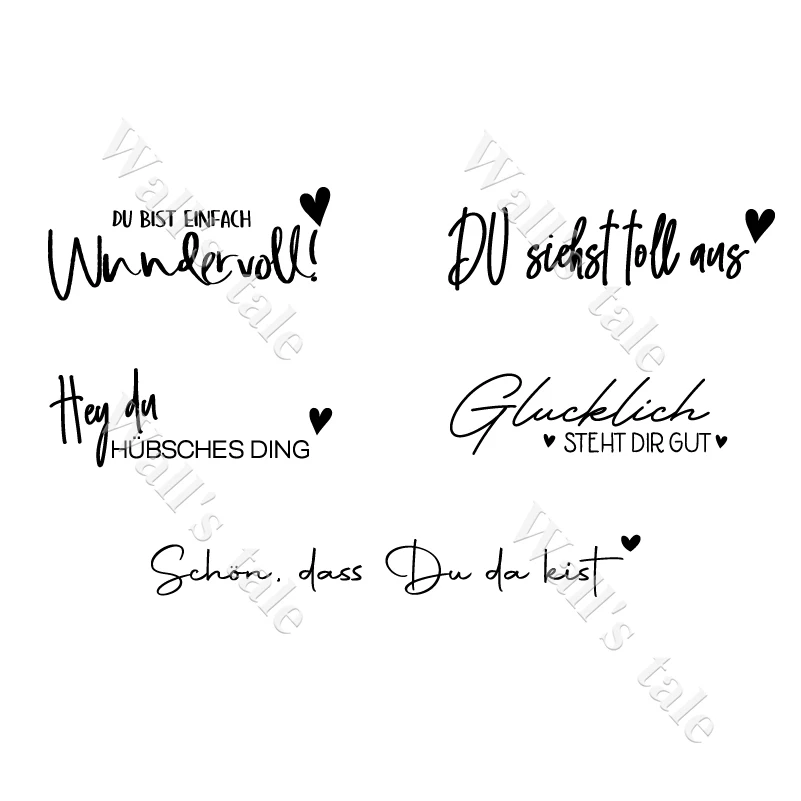 DU BIST EINFACH
Wundervoll!
DU siehst toll aus
Hey du
HÜBSCHES DING
Glucklich
STEHT DIR GUT
Schön, dass Du da kist
Wall's tale
Wall's tale
Wall's tale
Wall's tale